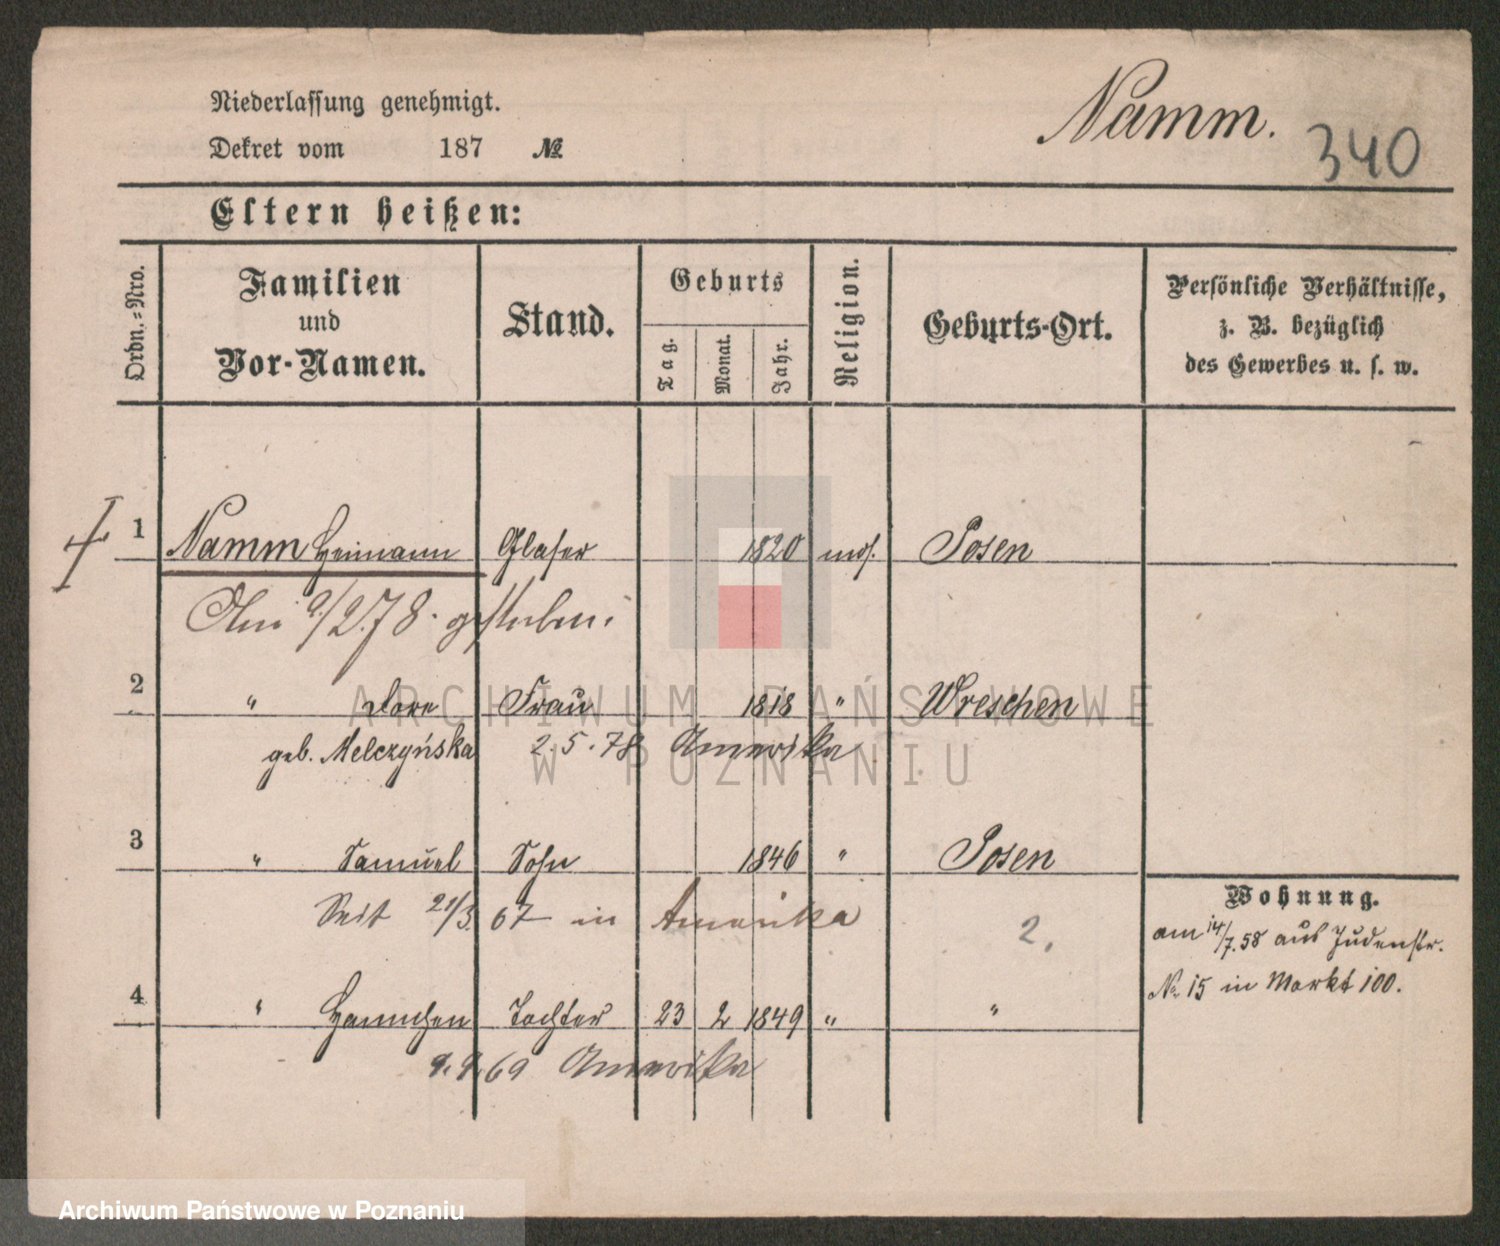 Niederlassung genehmigt.
Namm.
340
Dekret vom 187 №
Eltern heißen:
Ordn.-Nro.
Familien
und
Vor-Namen.
Stand.
Geburts
Tag.
Monat.
Jahr.
Religion.
Geburts-Ort.
Persönliche Verhältnisse,
z. B. bezüglich
des Gewerbes u. s. w.
1 Namm Heimann Glaser 1820 mos. Posen
Am 9/2.78. gestorben.
2 " Dore Frau 1818 " Wreschen
geb. Melczyńska 2.5.78 Amerika
3 " Samuel Sohn 1846 " Posen
Seit 21/3. 67 in Amerika
2.
Wohnung.
am 14/7.58 aus Judenstr.
No 15 in Markt 100.
4 " Hannchen Tochter 23 2 1849 " "
9.9.69 Amerika
ARCHIWUM PAŃSTWOWE
W POZNANIU
Archiwum Państwowe w Poznaniu